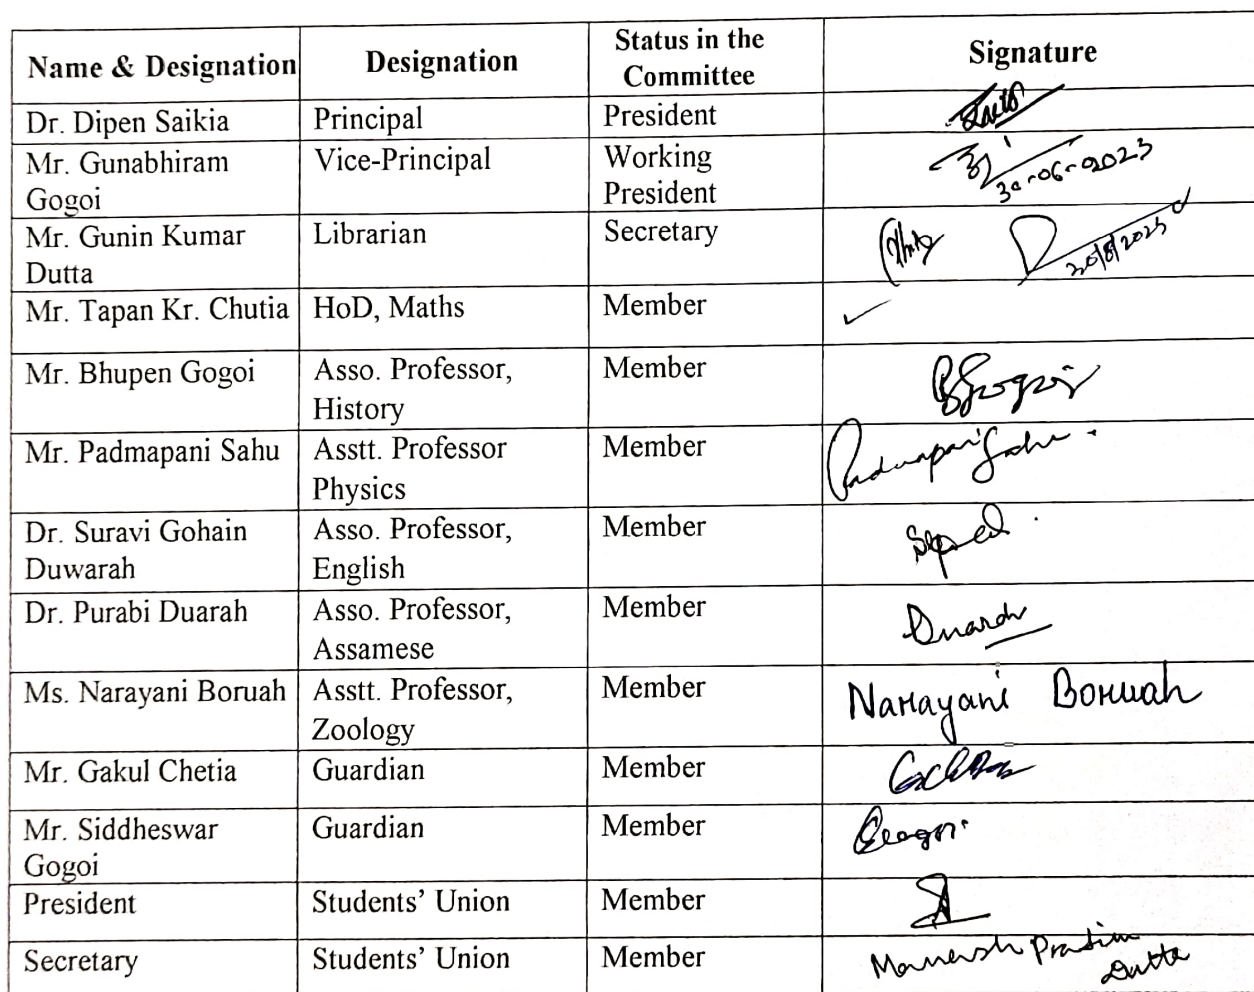 Name & Designation Designation Status in the Committee Signature
Dr. Dipen Saikia Principal President
Mr. Gunabhiram Gogoi Vice-Principal Working President 30-06-2023
Mr. Gunin Kumar Dutta Librarian Secretary
Mr. Tapan Kr. Chutia HoD, Maths Member
Mr. Bhupen Gogoi Asso. Professor, History Member BGogoi
Mr. Padmapani Sahu Asstt. Professor Physics Member Padmapani Sahu
Dr. Suravi Gohain Duwarah Asso. Professor, English Member
Dr. Purabi Duarah Asso. Professor, Assamese Member Duarah
Ms. Narayani Boruah Asstt. Professor, Zoology Member Narayani Boruah
Mr. Gakul Chetia Guardian Member
Mr. Siddheswar Gogoi Guardian Member
President Students' Union Member
Secretary Students' Union Member Pratim Dutta